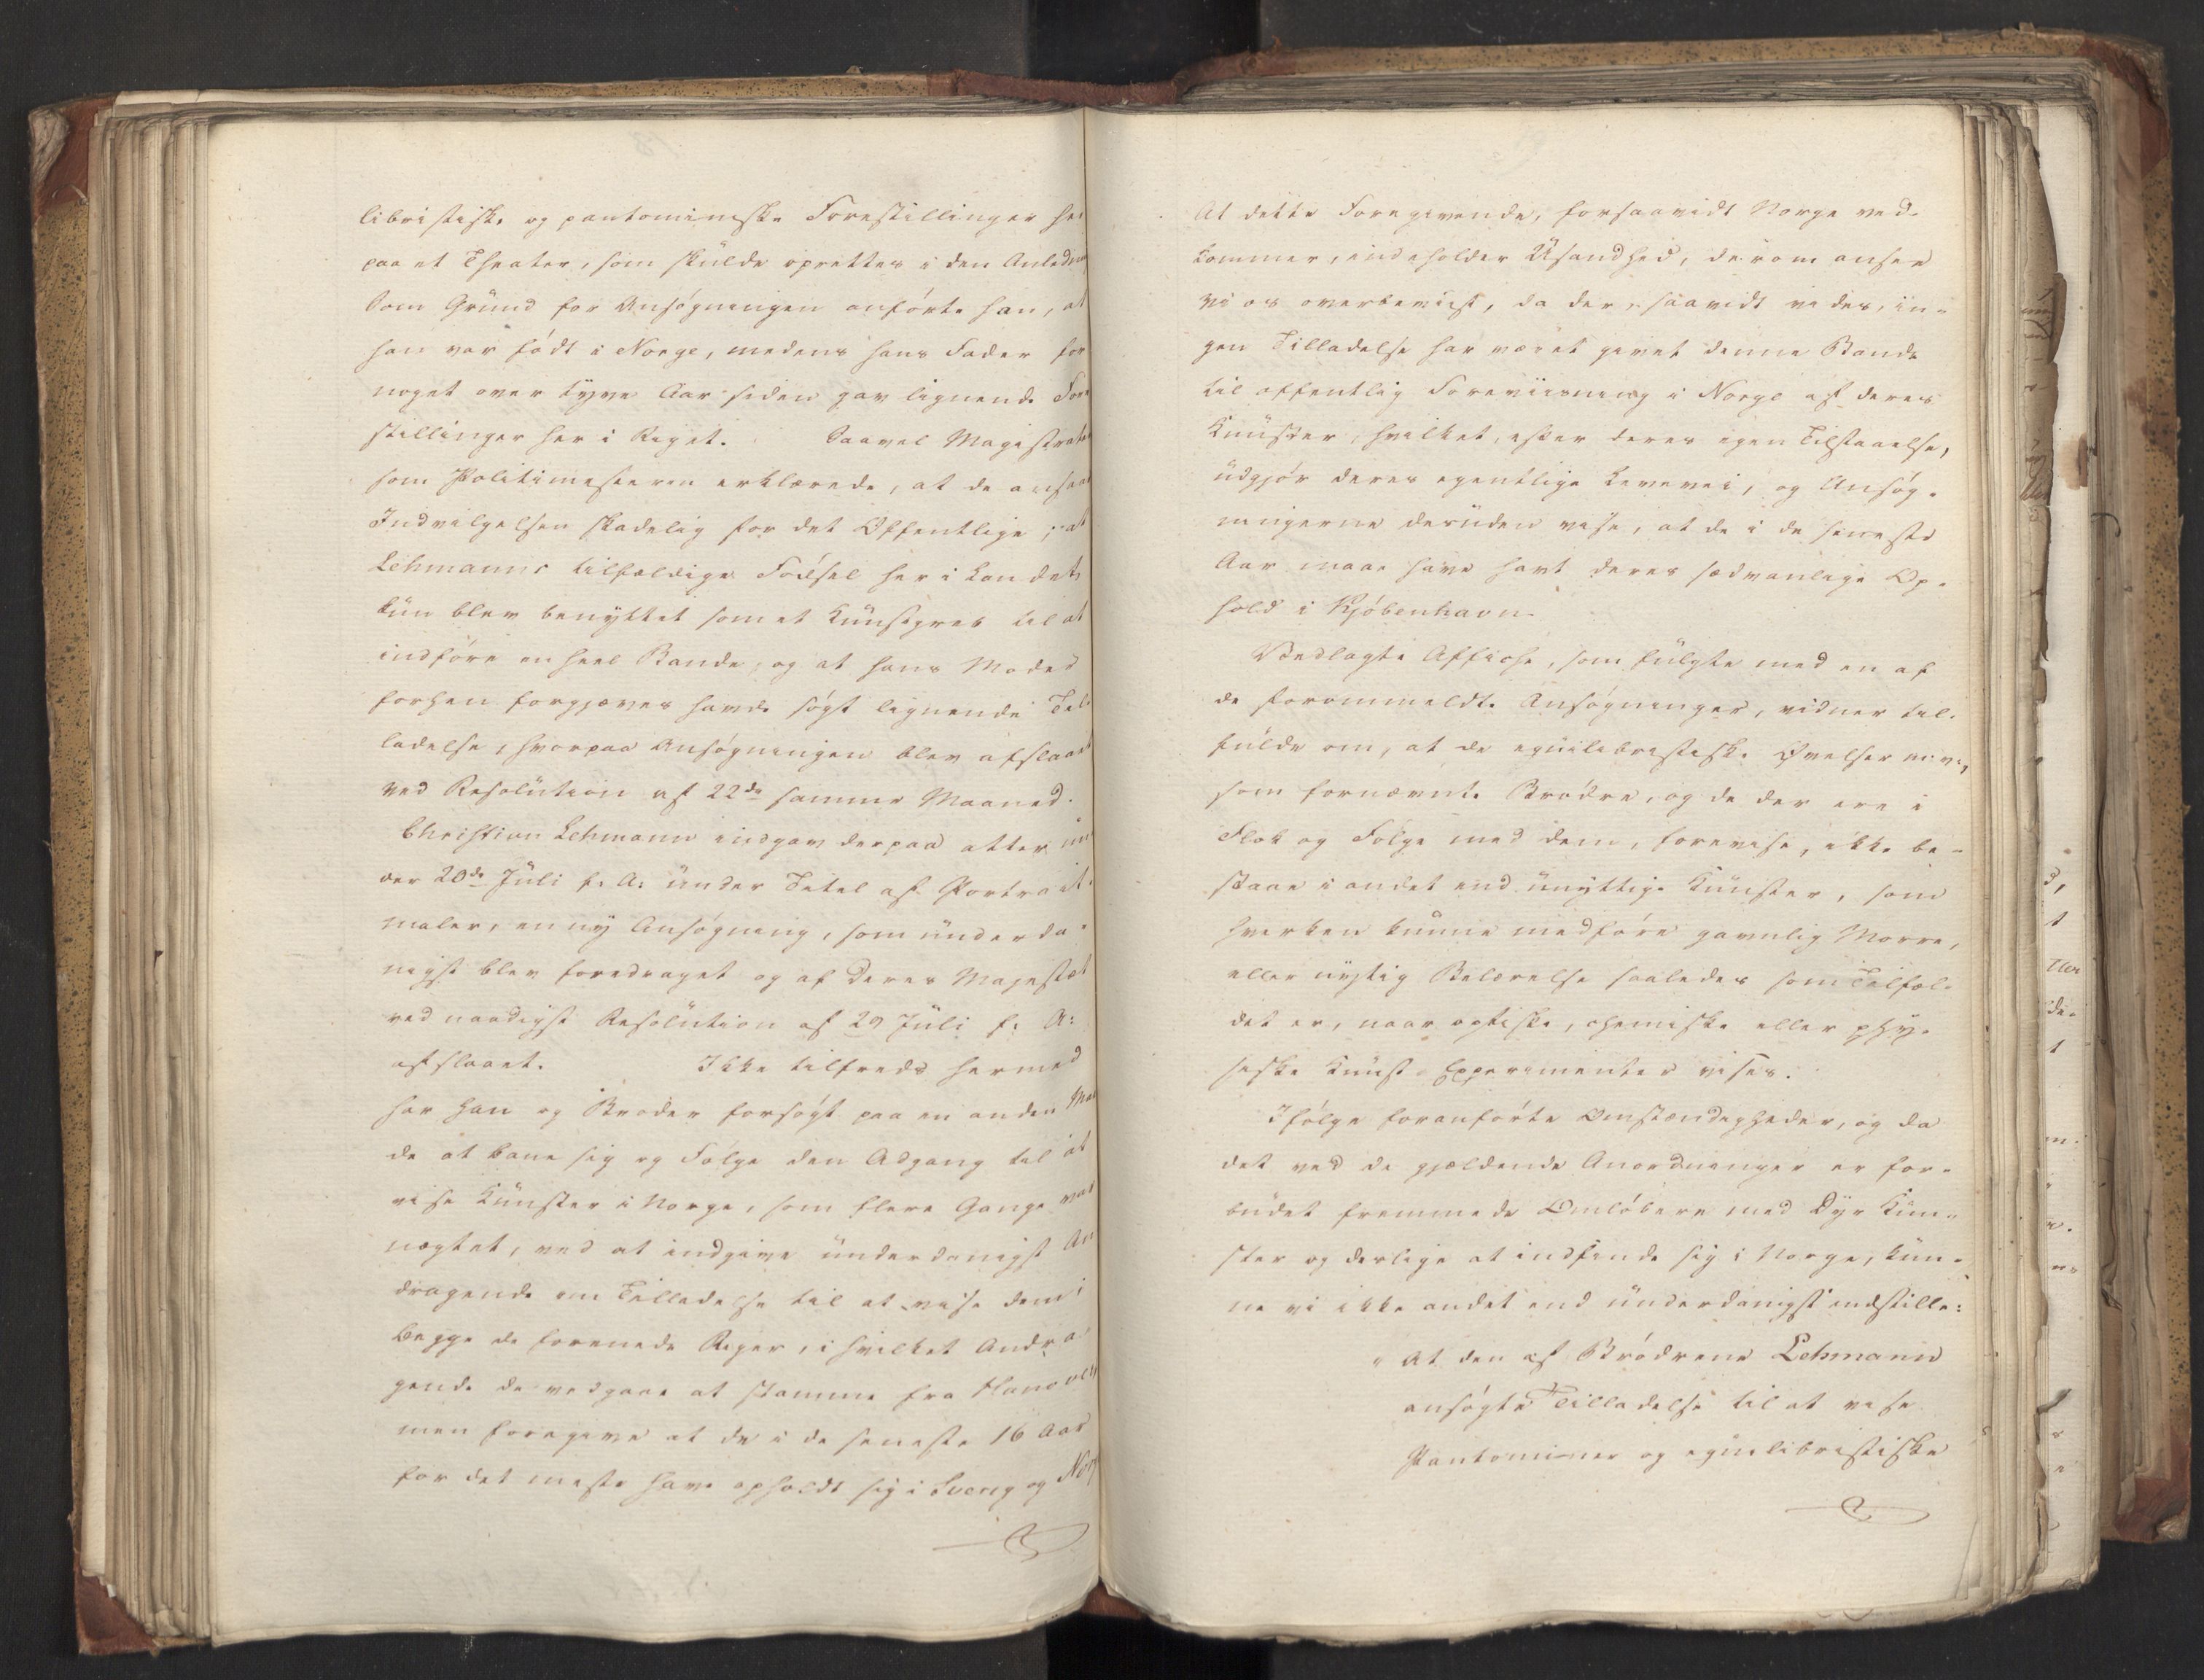 libristiske og pantomimiske Forestillinger her
paa et Theater, som skulde oprettes i den Anledn
Som Grund for Ansøgningen anførte han, at
han var født i Norge, medens hans Fader for
noget over tyve Aar siden gav lignende Fore
stillinger her i Riget. Saavel Magistraten
som Politimesteren erklærede, at de ansaae
Indvilgelsen skadelig for det Offentlige; at
Lehmanns tilfældige Fødsel her i Landet,
kun blev benyttet som et Kunstgreb til at
indføre en heel Bande, og at hans Moder
forhen forgjæves havde søgt lignende Til-
ladelse, hvorpaa Ansøgningen blev afslaaet
ved Resolution af 22de samme Maaned.
Christian Lehmann indgav derpaa atter un
der 20de Juli f. A: under Titel af Portrait-
maler, en ny Ansøgning, som underda-
nigst blev foredraget og af Deres Majestæt
ved naadigst Resolution af 29 Juli f: A:
afslaaet. Ikke tilfreds hermed
har han og Broder forsøgt paa en anden Maa
de at bane sig og Følge den Adgang til at
vise Kunster i Norge, som flere Gange var
nægtet, ved at indgive underdanigst An
dragende om Tilladelse til at vise dem i
begge de forenede Riger, i hvilket Andra
gende de vedgaae at stamme fra Hanover,
men foregive at de i de seneste 16 Aar
for det meste have opholdt sig i Sverig og Norg
At dette Foregivende, forsaavidt Norge ved-
kommer, indeholder Usandhed, derom ansee
vi os overbeviist, da der, saavidt vides, in-
gen Tilladelse har været givet denne Bande
til offentlig Foreviisning i Norge af deres
Kunster, hvilket, efter deres egen Tilstaaelse,
udgjør deres egentlige Levevei, og Ansøg-
ningerne desuden vise, at de i de seneste
Aar maae have havt deres sædvanlige Op-
hold i Kjøbenhavn.
Vedlagte Affiche, som fulgte med en af
de forommeldte Ansøgninger, vidner til-
fulde om, at de equilibristiske Øvelser m: v:,
som fornævnte Brødre, og de der ere i
Flok og Følge med dem, forevise, ikke be-
staae i andet end unyttige Kunster, som
hverken kunne medføre gavnlig Morre,
eller nyttig Belærelse saaledes som Tilfæl-
det er, naar optiske, chemiske eller phy-
siske Kunst-Experimenter vises.
Ifølge foranførte Omstændigheder, og da
det ved de gjældende Anordninger er for-
budet fremmede Omløbere med Dyr Kun-
ster og deslige at indfinde sig i Norge, kun-
ne vi ikke andet end underdanigst indstille:
"At den af Brødrene Lehmann
ansøgte Tilladelse til at vise
Pantomimer og equilibristiske